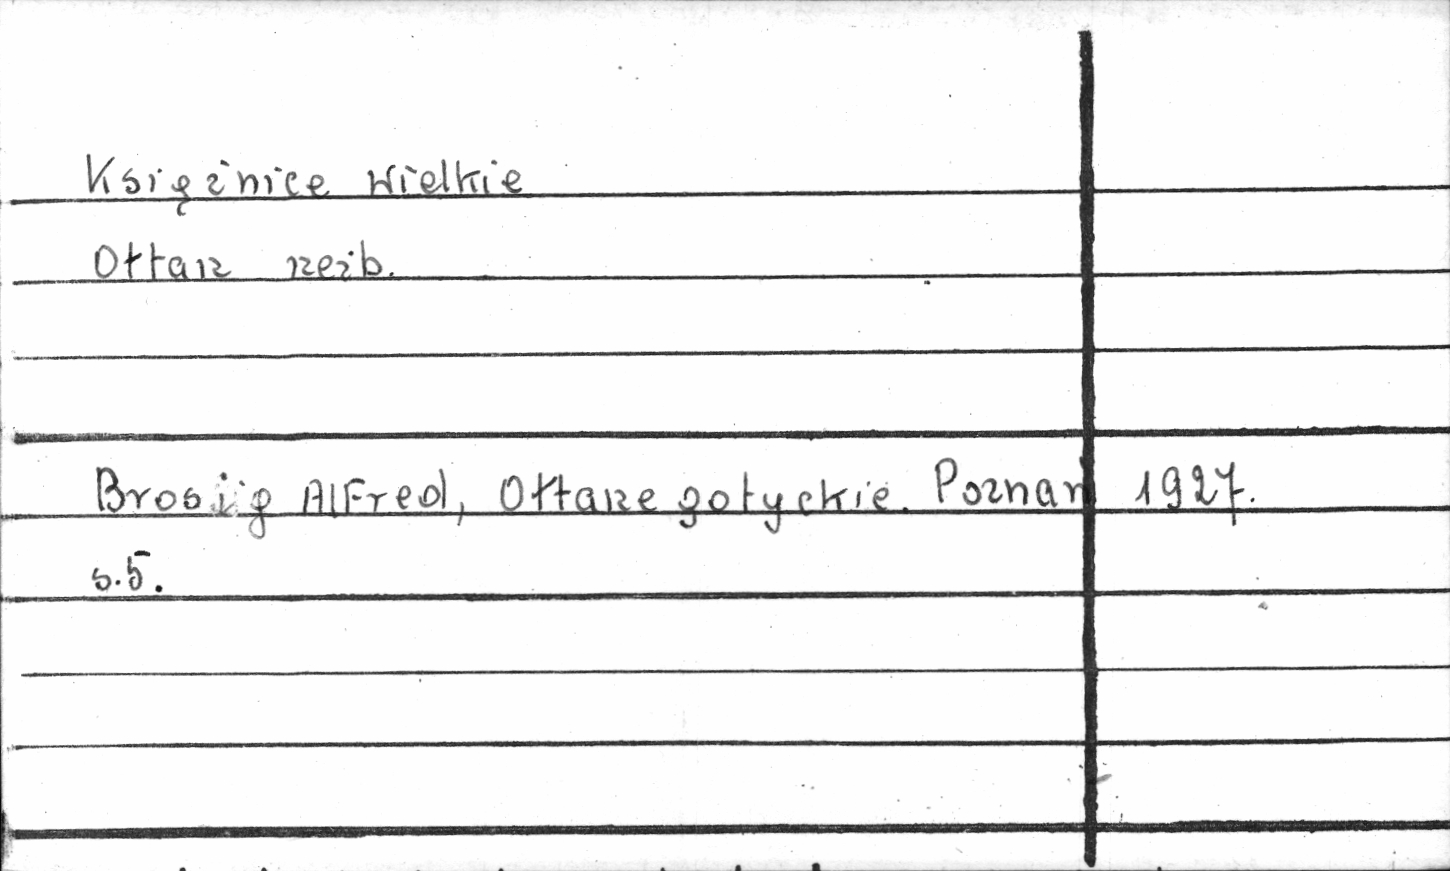 Księżnice Wielkie
Ołtarz rzeźb.
Brosig Alfred, Ołtarze gotyckie. Poznań 1927.
s.5.